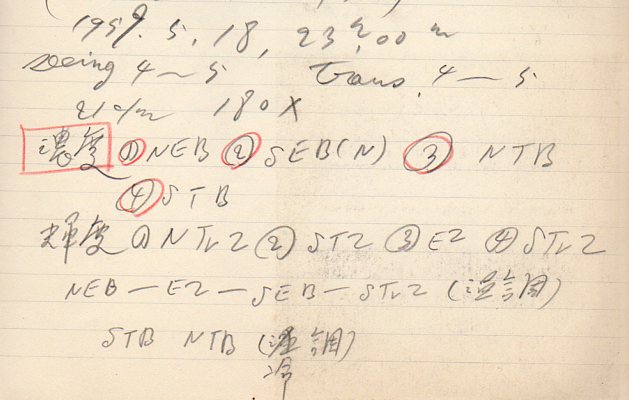 1959. 5. 18, 23h 00m
seeing 4～5 Trans. 4～5
21cm 180X
濃度 ①NEB ②SEB(N) ③ NTB
④STB
輝度 ①NTrZ ②STZ ③EZ ④STrZ
NEB—EZ—SEB—STrZ (温調)
STB NTB (調)
冷